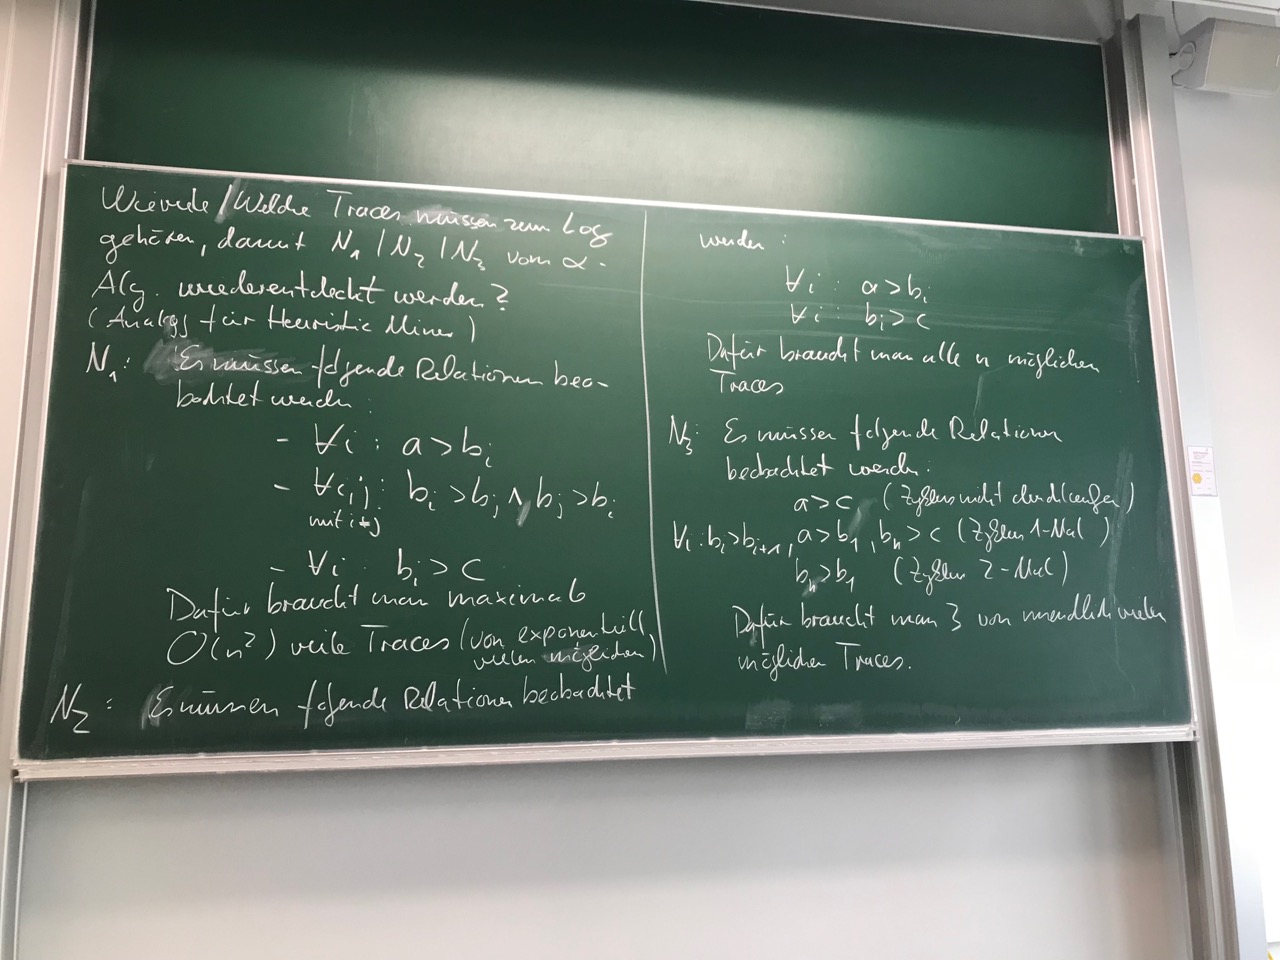 Wieviele / Welche Traces müssen zum Log
gehören, damit N₁ / N₂ / N₃ vom α-
Alg. wiederentdeckt werden?
(Analog für Heuristic Miner)
N₁: Es müssen folgende Relationen beo-
bachtet werden:
- ∀i : a > bᵢ
- ∀i,j : bᵢ > bⱼ ∧ bⱼ > bᵢ
mit i≠j
- ∀i : bᵢ > c
Dafür braucht man maximal
O(n²) viele Traces (von exponentiell
vielen möglichen)
N₂ : Es müssen folgende Relationen beobachtet
werden :
∀i : a > bᵢ
∀i : bᵢ > c
Dafür braucht man alle n möglichen
Traces
N₃: Es müssen folgende Relationen
beobachtet werden:
a > c (Zyklus nicht durchlaufen)
∀i : bᵢ > bᵢ₊₁, a > b₁, bₙ > c (Zyklus 1-Mal)
bₙ > b₁ (Zyklus 2-Mal)
Dafür braucht man 3 von unendlich vielen
möglichen Traces.